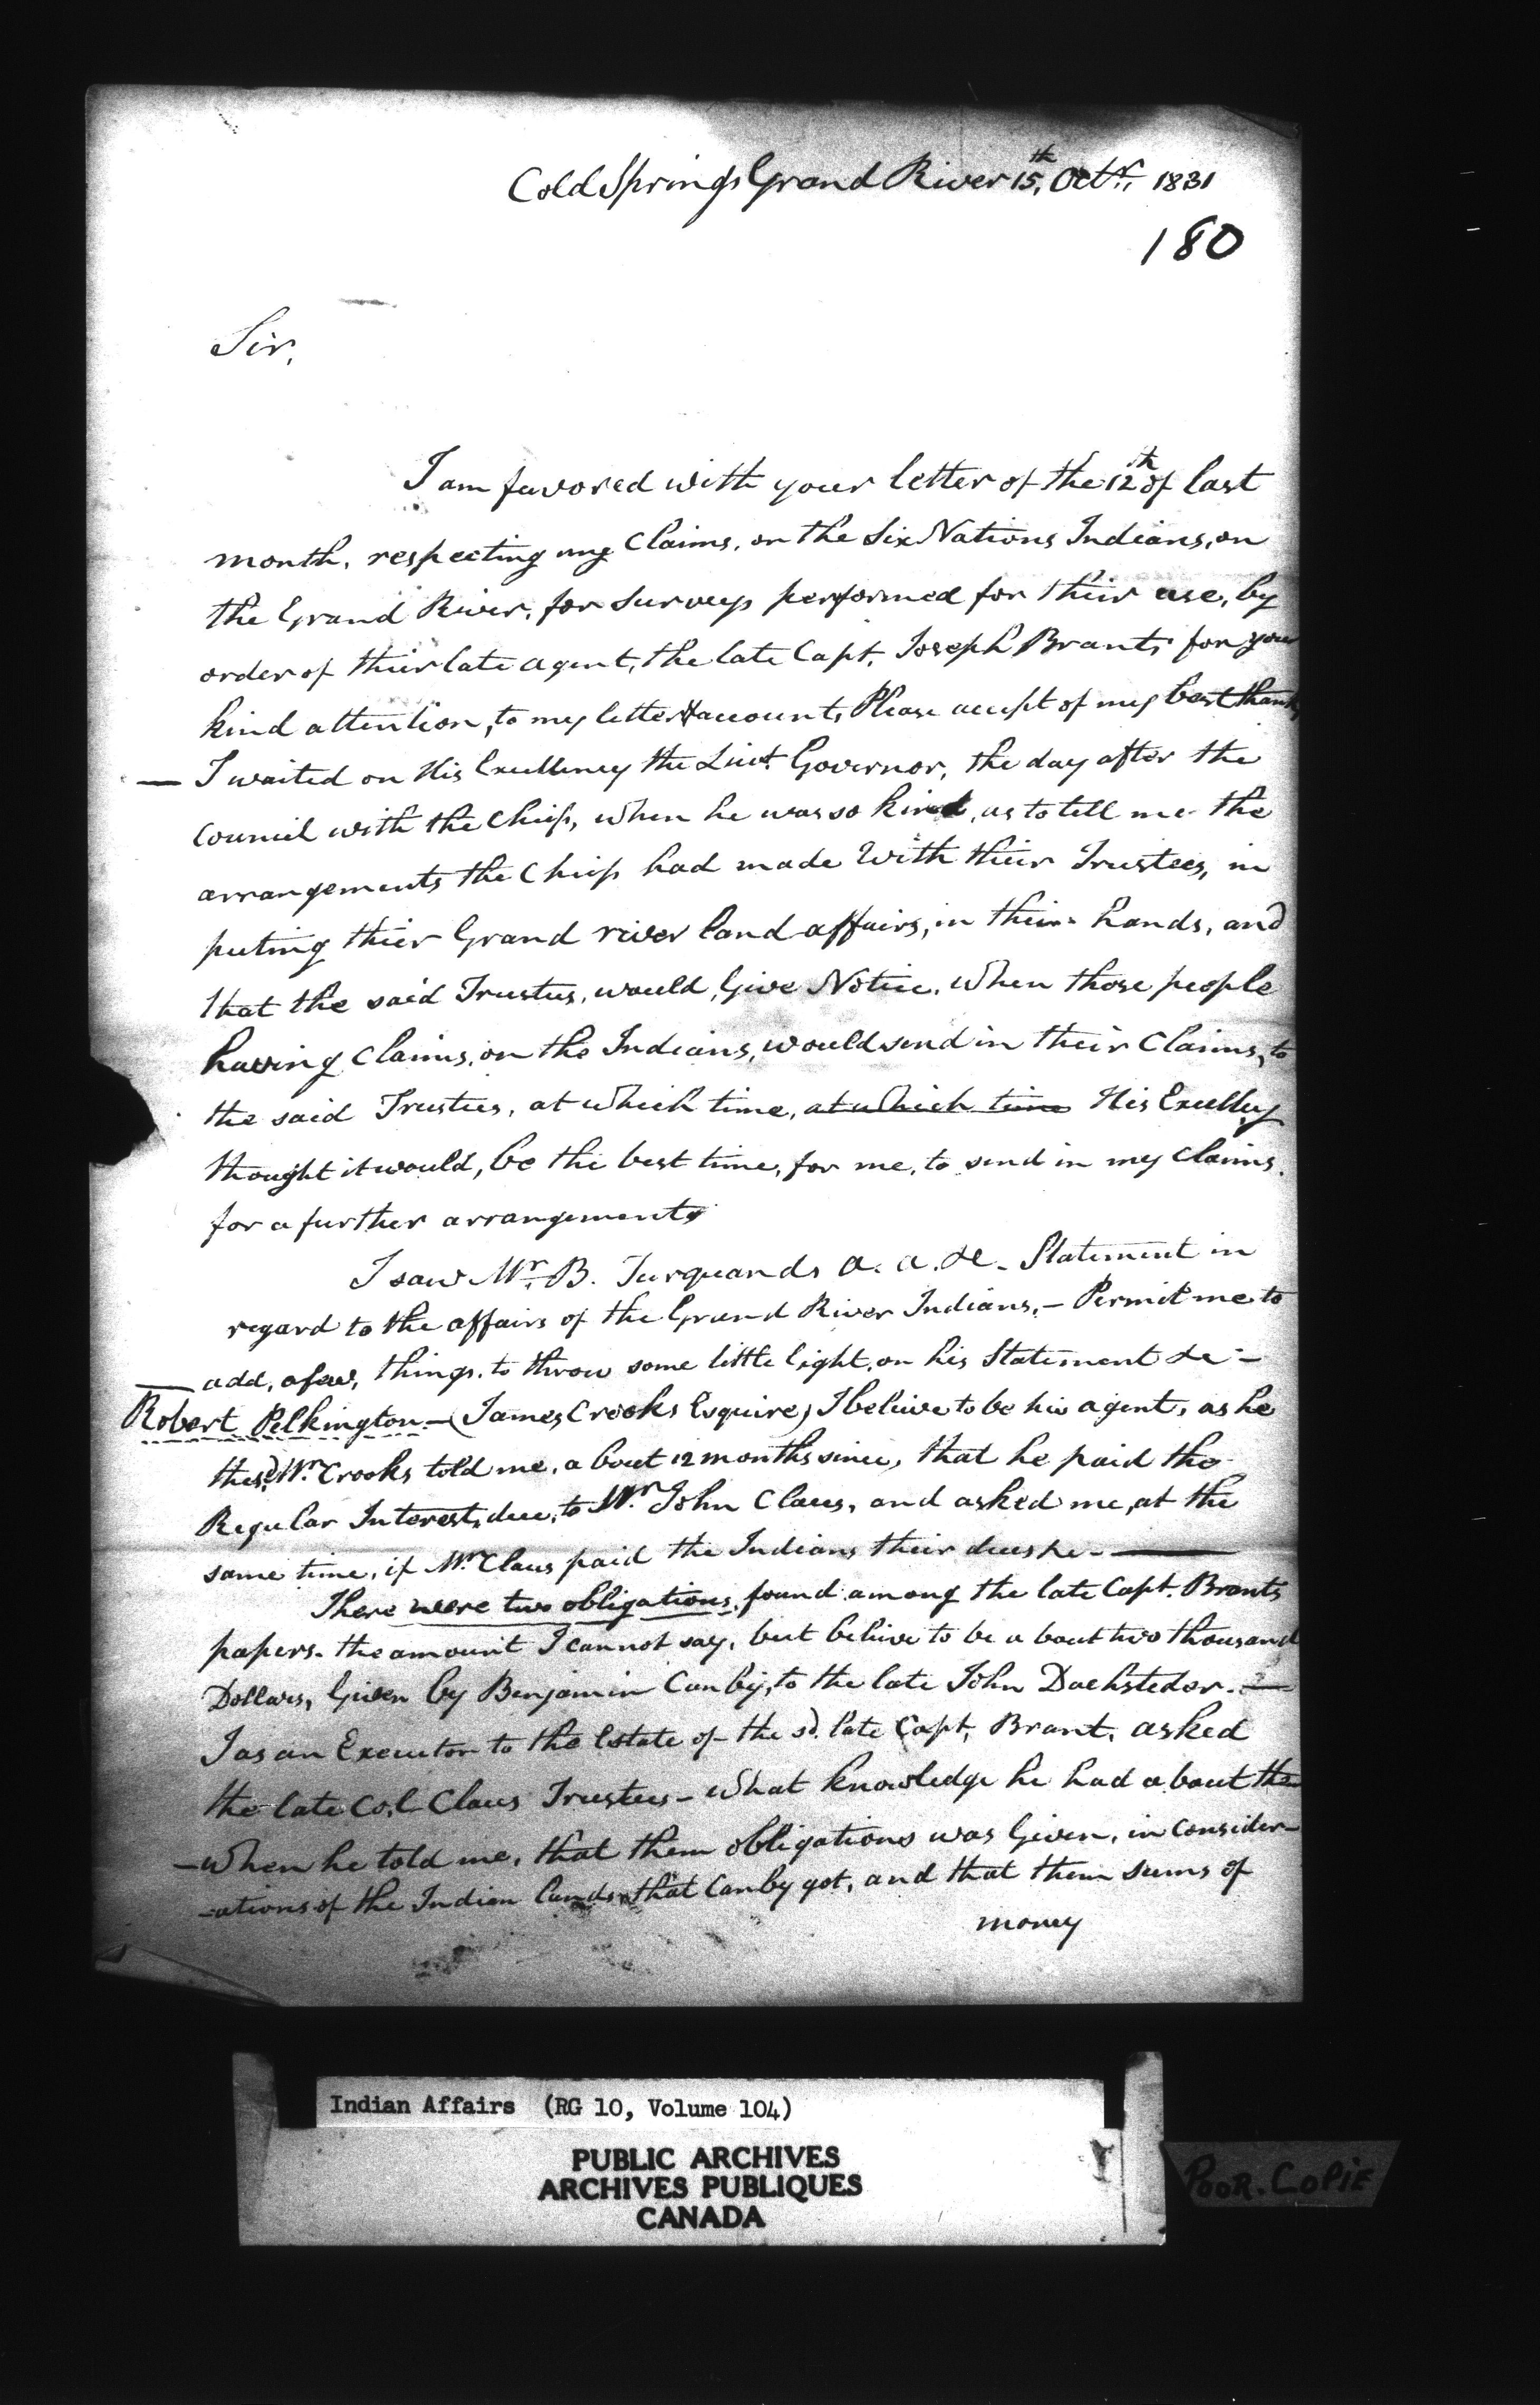 Cold Springs Grand River 15th, Octr, 1831
180
Sir,
I am favored with your letter of the 12th of last
month, respecting my Claims, on the Six Nations Indians, on
the Grand River, for Surveys performed for their use, by
order of their late agent, the late Capt. Joseph Brant, for your
kind attention, to my letter & account, Please accept of my best thanks
— I waited on His Excellency the Lieut. Governor, the day after the
Council with the Chiefs, when he was so kind, as to tell me the
arrangements the Chiefs had made With their Trustees, in
puting thier Grand river land affairs, in their hands, and
that the said Trustees, would, Give Notice, when those people
having Claims, on the Indians, would send in their Claims, to
the said Trustees, at which time, at which time His Excelly
thought it would, be the best time, for me, to send in my Claims.
for a further arrangements
I saw Mr. B. Turquands A. A. &c. Statement in
regard to the affairs of the Grand River Indians, — Permit me to
— add, a few, things, to throw some little light, on his Statement &c —
Robert Pelkington — (James Crooks Esquire) I believe to be his agent, as he
the sd. Mr. Crooks told me, about 12 months since, that he paid the
Regular Interest, due, to Mr. John Claus, and asked me, at the
same time, if Mr. Claus paid the Indians their dues &c — —
There were two obligations, found among the late Capt. Brants
papers. the amount I cannot say, but believe to be about two thousand
Dollars, Given by Benjamin Canby, to the late John Dochsteder. —
I as an Executor to the Estate of the sd. late Capt. Brant, asked
the late Col. Claus Trustees — What knowledge he had about them
— When he told me, that them obligations was Given, in consider-
-ations of the Indian Lands, that Canby got, and that them sums of
money
Indian Affairs (RG 10, Volume 104)
PUBLIC ARCHIVES
ARCHIVES PUBLIQUES
CANADA
POOR. COPIE